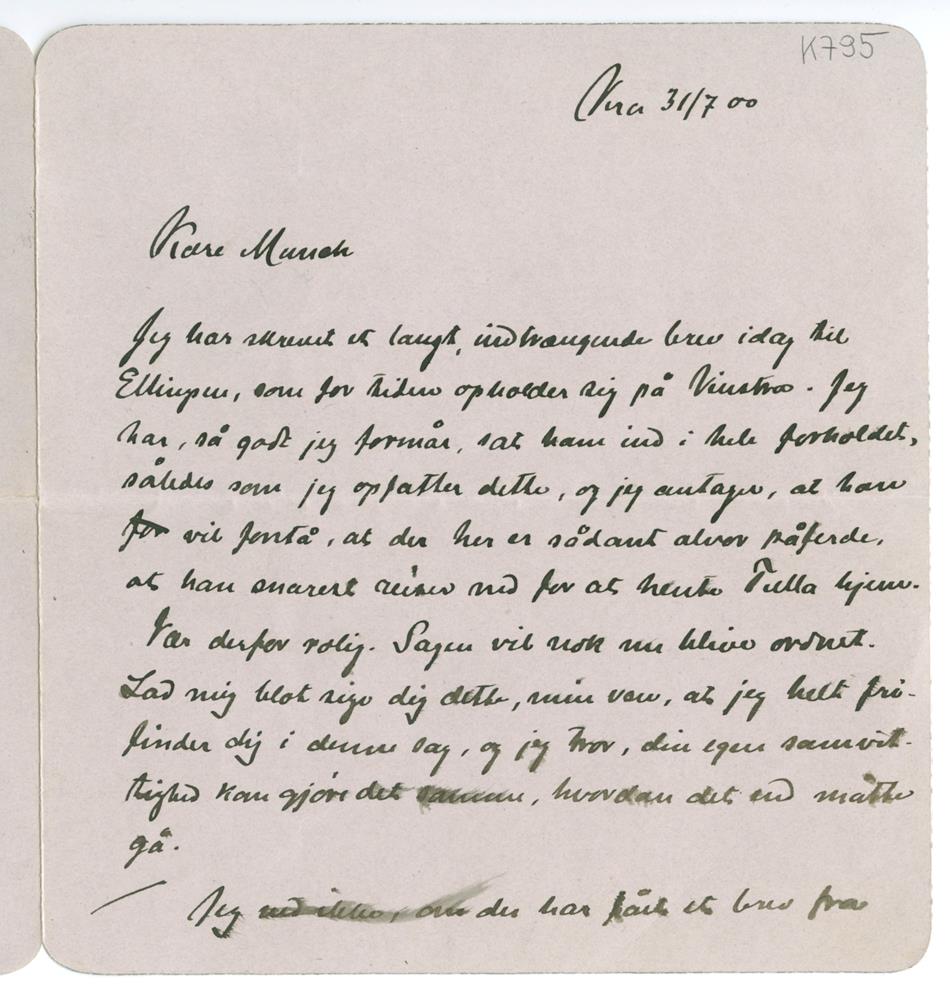 K795
Vira 31/7 00
Kære Munch
Jeg har skrevet et langt, indtrængende brev idag til
Ellingsen, som for tiden opholder sig på Vinstra. Jeg
har, så godt jeg formår, sat ham ind i hele forholdet,
således som jeg opfatter dette, og jeg antager, at han
for vil forstå, at der her er sådant alvor påferde,
at han snarest reiser ned for at hente Tulla hjem.
Vær derfor rolig. Sagen vil nok nu blive ordnet.
Lad mig blot sige dig dette, min ven, at jeg helt fri-
finder dig i denne sag, og jeg tror, din egen samvit-
tighed kan gjøre det samme, hvordan det end måtte
gå.
Jeg ved ikke, om du har fået et brev fra